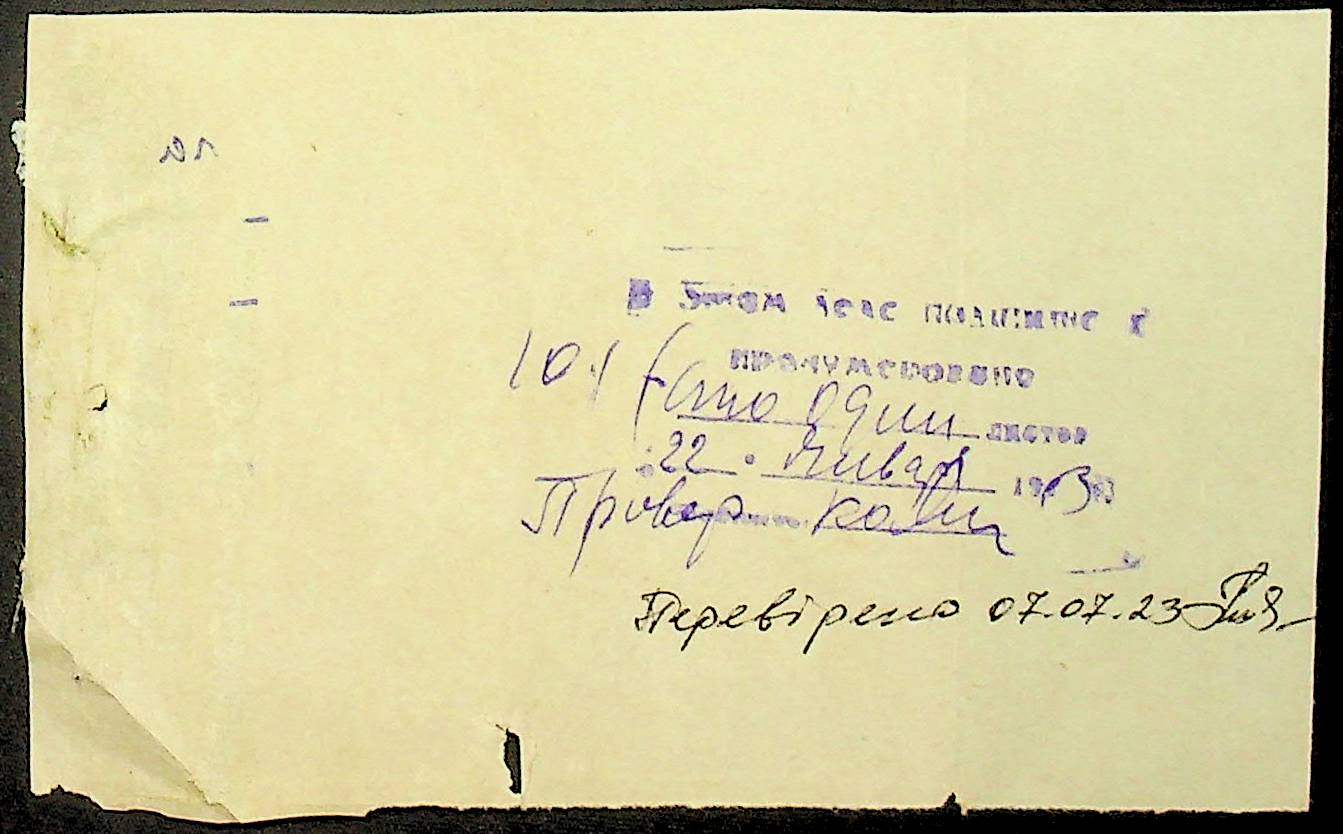 В этом деле подшито и
пронумеровано
101 (сто один листов
"22" января 19
Провер.
Перевірено 07.07.23